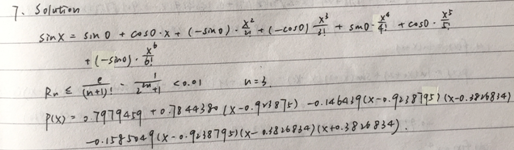 7. Solution
sinx = sin0 + cos0·x + (-sin0)·x²/2! + (-cos0)x³/3! + sin0·x⁴/4! + cos0·x⁵/5!
+ (-sin0)·x⁶/6!
Rn ≤ e/(n+1)! · 1/2²ⁿ+1 < 0.01 n=3.
P(x) = 2.7979459 + 0.7844380(x-0.923875) - 0.146439(x-0.9238795)(x-0.3826834)
-0.1585049(x-0.9238795)(x-0.3826834)(x+0.3826834).